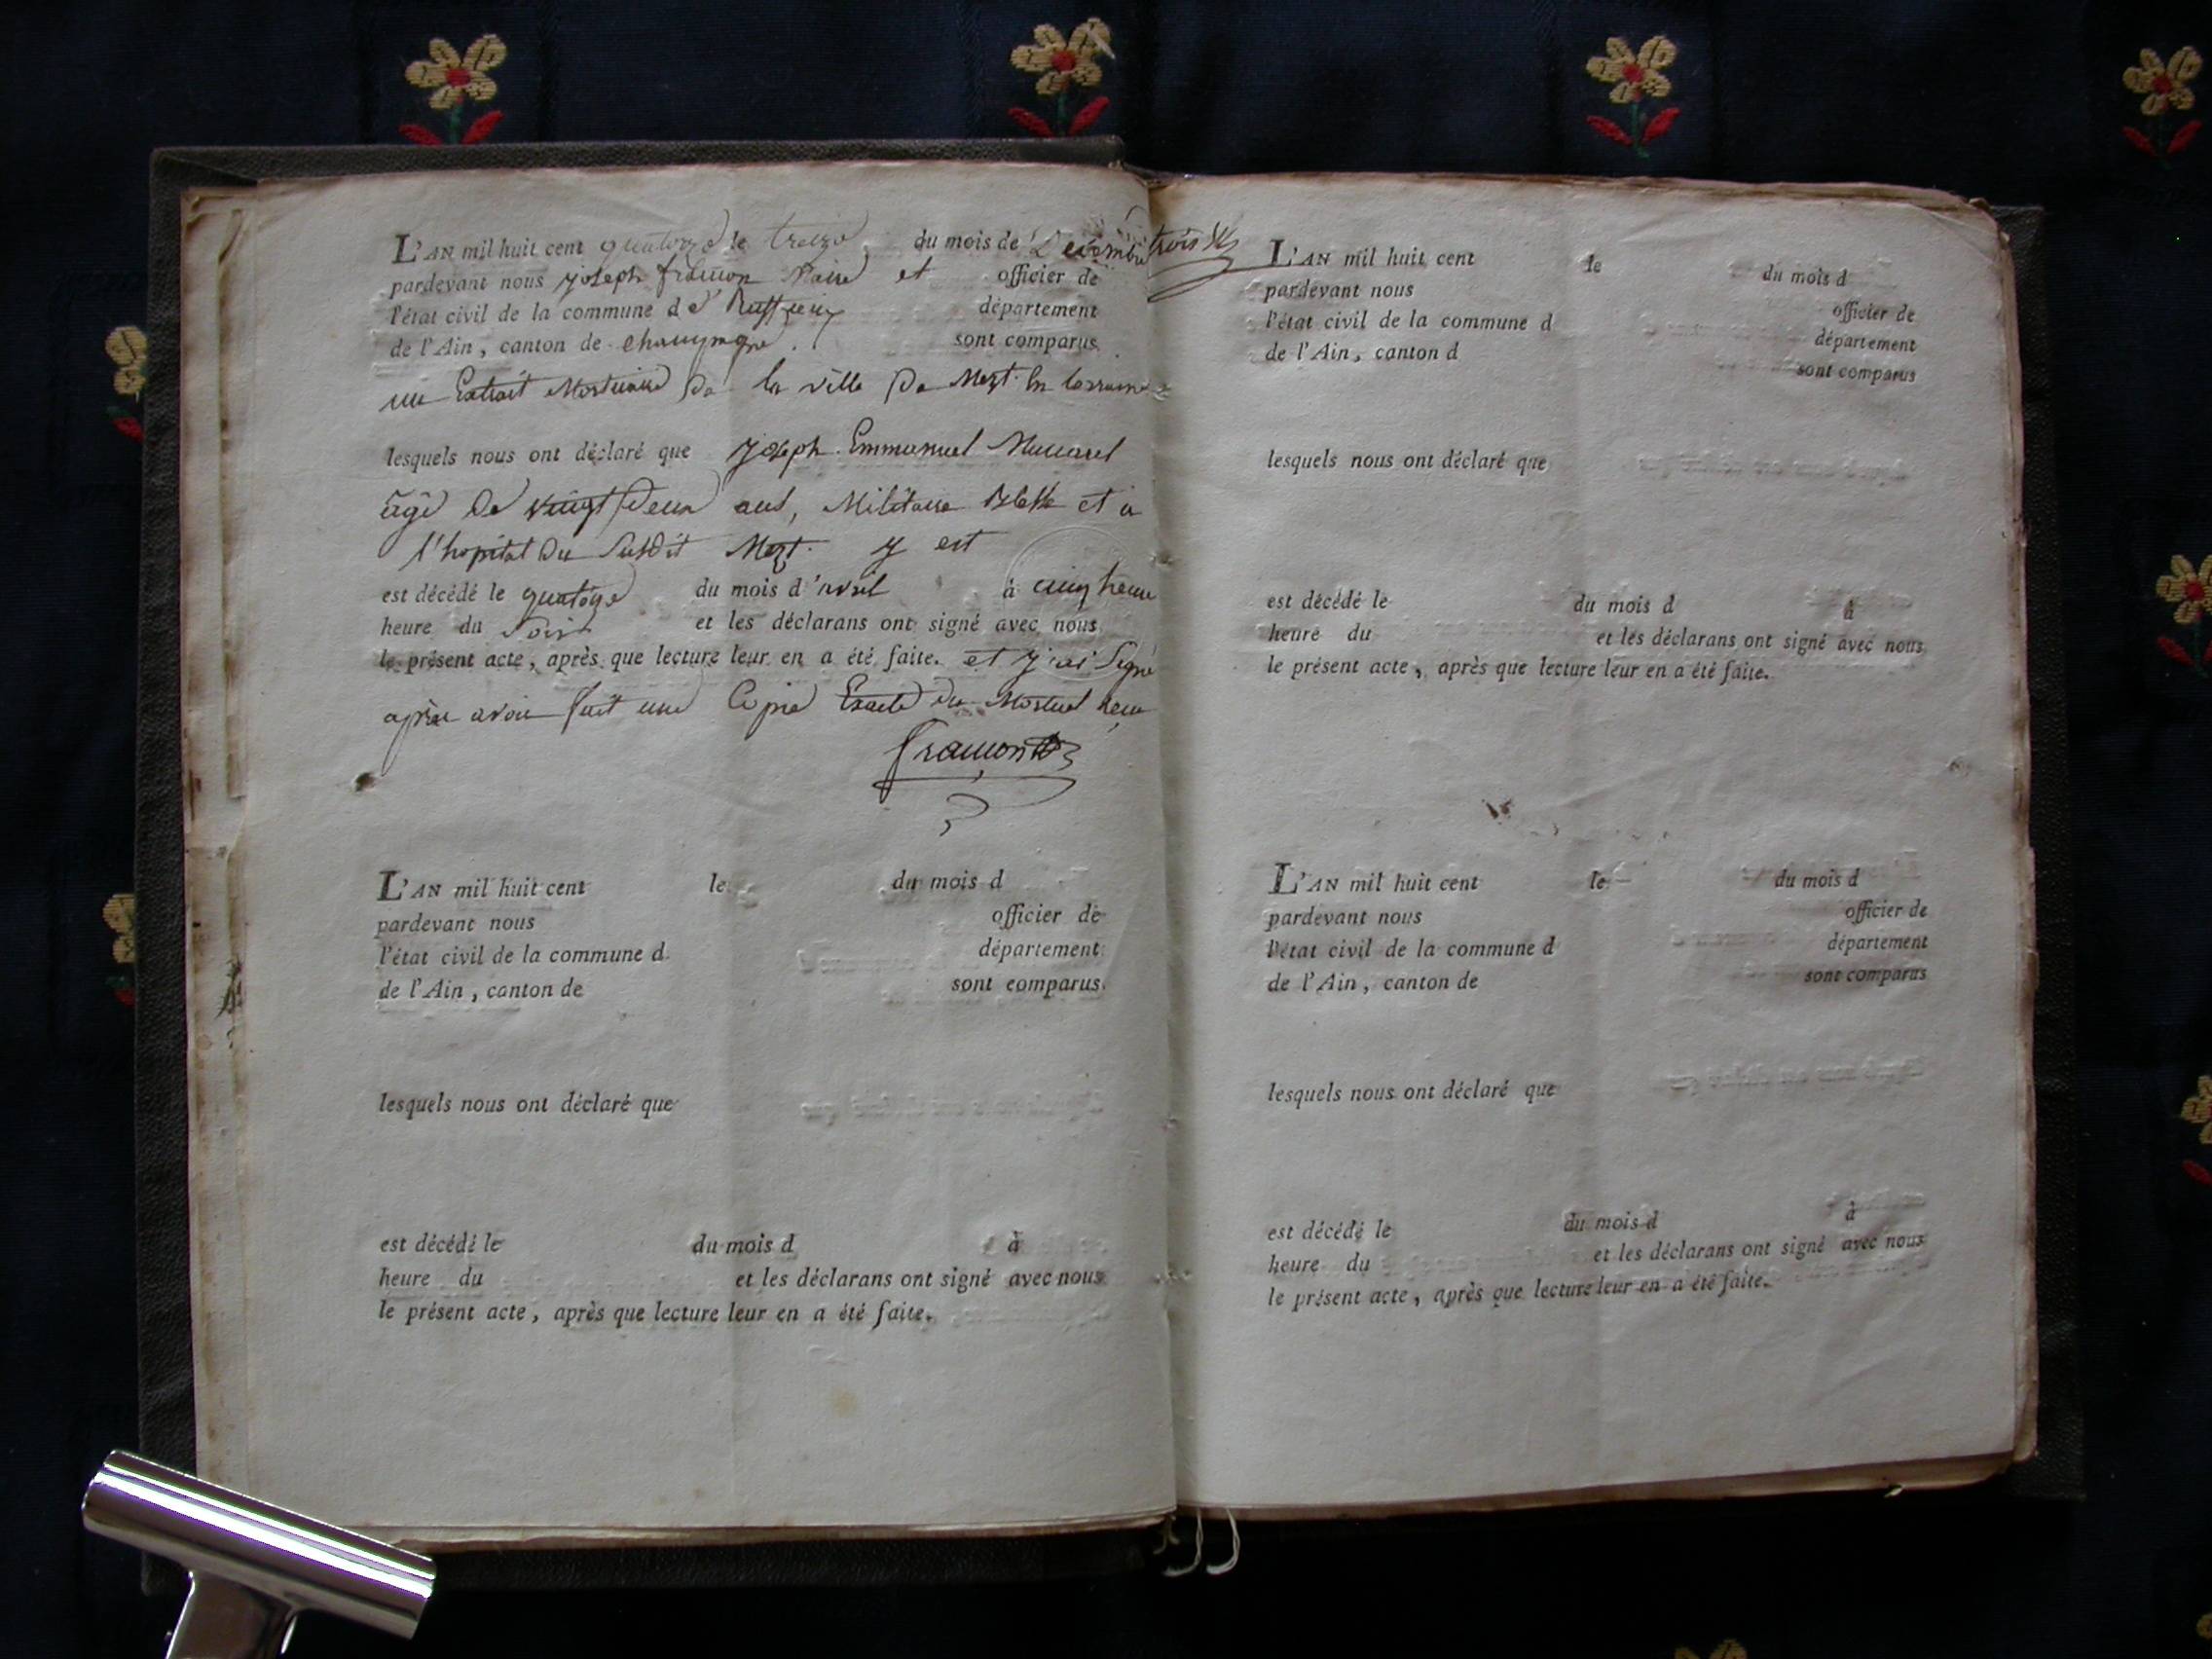 L'AN mil huit cent quatorze le treize du mois de Décembre trois
pardevant nous joseph framon Maire et officier de
l'état civil de la commune de Ruffieux département
de l'Ain, canton de champagne. sont comparus
un Extrait Mortuaire De la ville De Mezt En lorraine
lesquels nous ont déclaré que joseph Emmanuel
âgé De vuigt Deux ans, Militaire et a
l'hopital Du Susdit Mezt. y est
est décédé le quatorze du mois d'avril à cinq heure
heure du Soir et les déclarans ont signé avec nous
le présent acte, après que lecture leur en a été faite. et j'ai Signé
après avoir fait une Copie Exacte du
framont
L'AN mil huit cent le du mois d
pardevant nous officier de
l'état civil de la commune d département
de l'Ain, canton de sont comparus
lesquels nous ont déclaré que
est décédé le du mois d à
heure du et les déclarans ont signé avec nous
le présent acte, après que lecture leur en a été faite.
L'AN mil huit cent le du mois d
pardevant nous officier de
l'état civil de la commune d département
de l'Ain, canton d sont comparus
lesquels nous ont déclaré que
est décédé le du mois d à
heure du et les déclarans ont signé avec nous
le présent acte, après que lecture leur en a été faite.
L'AN mil huit cent le du mois d
pardevant nous officier de
l'état civil de la commune d département
de l'Ain, canton de sont comparus
lesquels nous ont déclaré que
est décédé le du mois d à
heure du et les déclarans ont signé avec nous
le présent acte, après que lecture leur en a été faite.